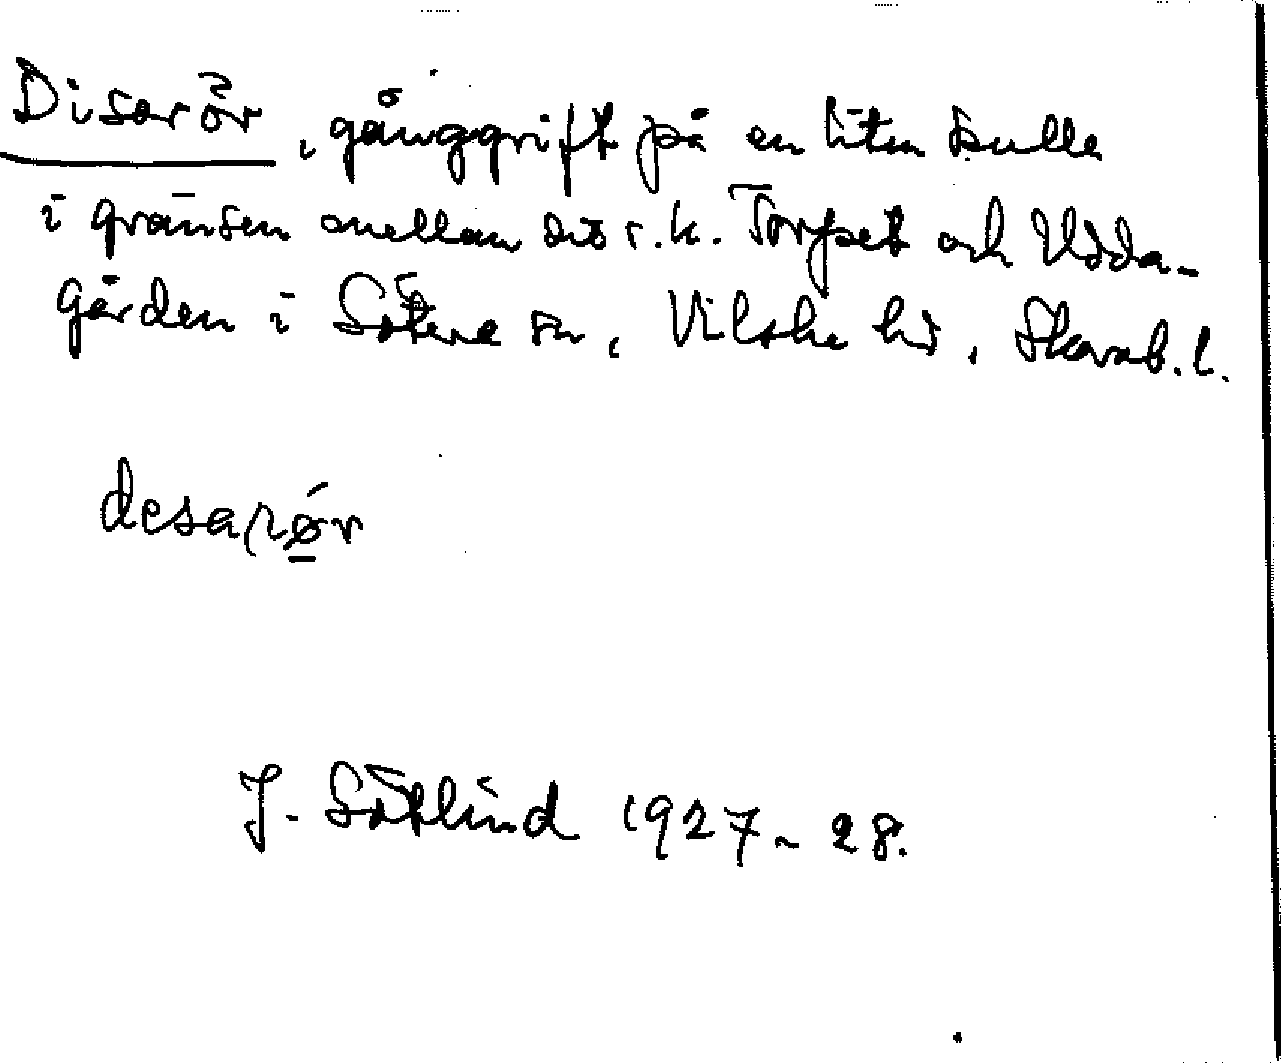 Disarör, gånggrift på en liten kulle
i gränsen mellan det s.k. Torpet och Udda-
gården i Sätene sn, Vilske hd, Skarab. l.
desarǿr
J. Götlind 1927-28.